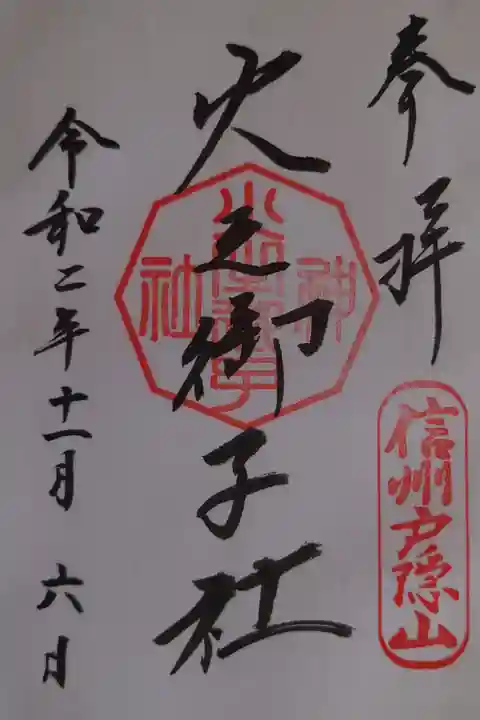 奉拝
信州戸隠山
火之御子社
神
社
令和二年十一月六日